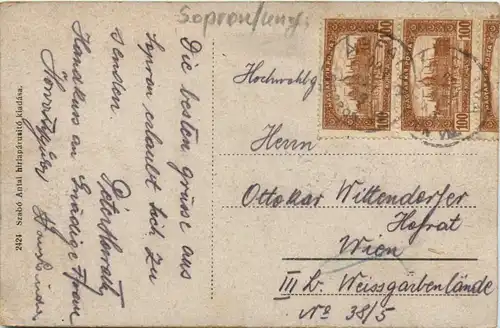 Sopron/Ung:
Die besten grüsse aus
Sopron erlaubt sich zu
senden
Handkuss an Gnädige Frau
2424 Szabó Antal hirlapárusító kiadása.
100 100
100 100
Hochwohlg
Herrn
Ottokar Wittendorfer
Hofrat
Wien
III b. Weissgärbenlände
No 38/5